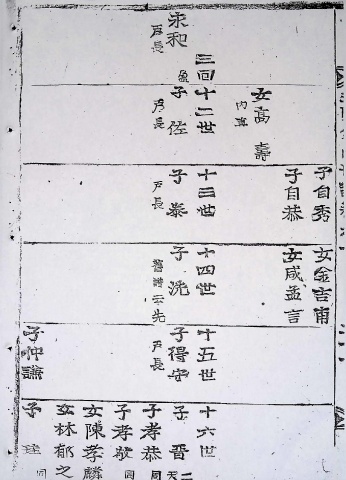 永和
戶長
女高 壽
十二世
子 佐
戶長
子自秀
子自恭
十三世
子 泰
戶長
女金吉甫
女咸孟言
十四世
子 洗
舊譜云先
十五世
子得守
戶長
子仲謙
十六世
子 晋
二天
子孝恭
同
子孝敬
同
女陳孝麟
女林郁之
子
同